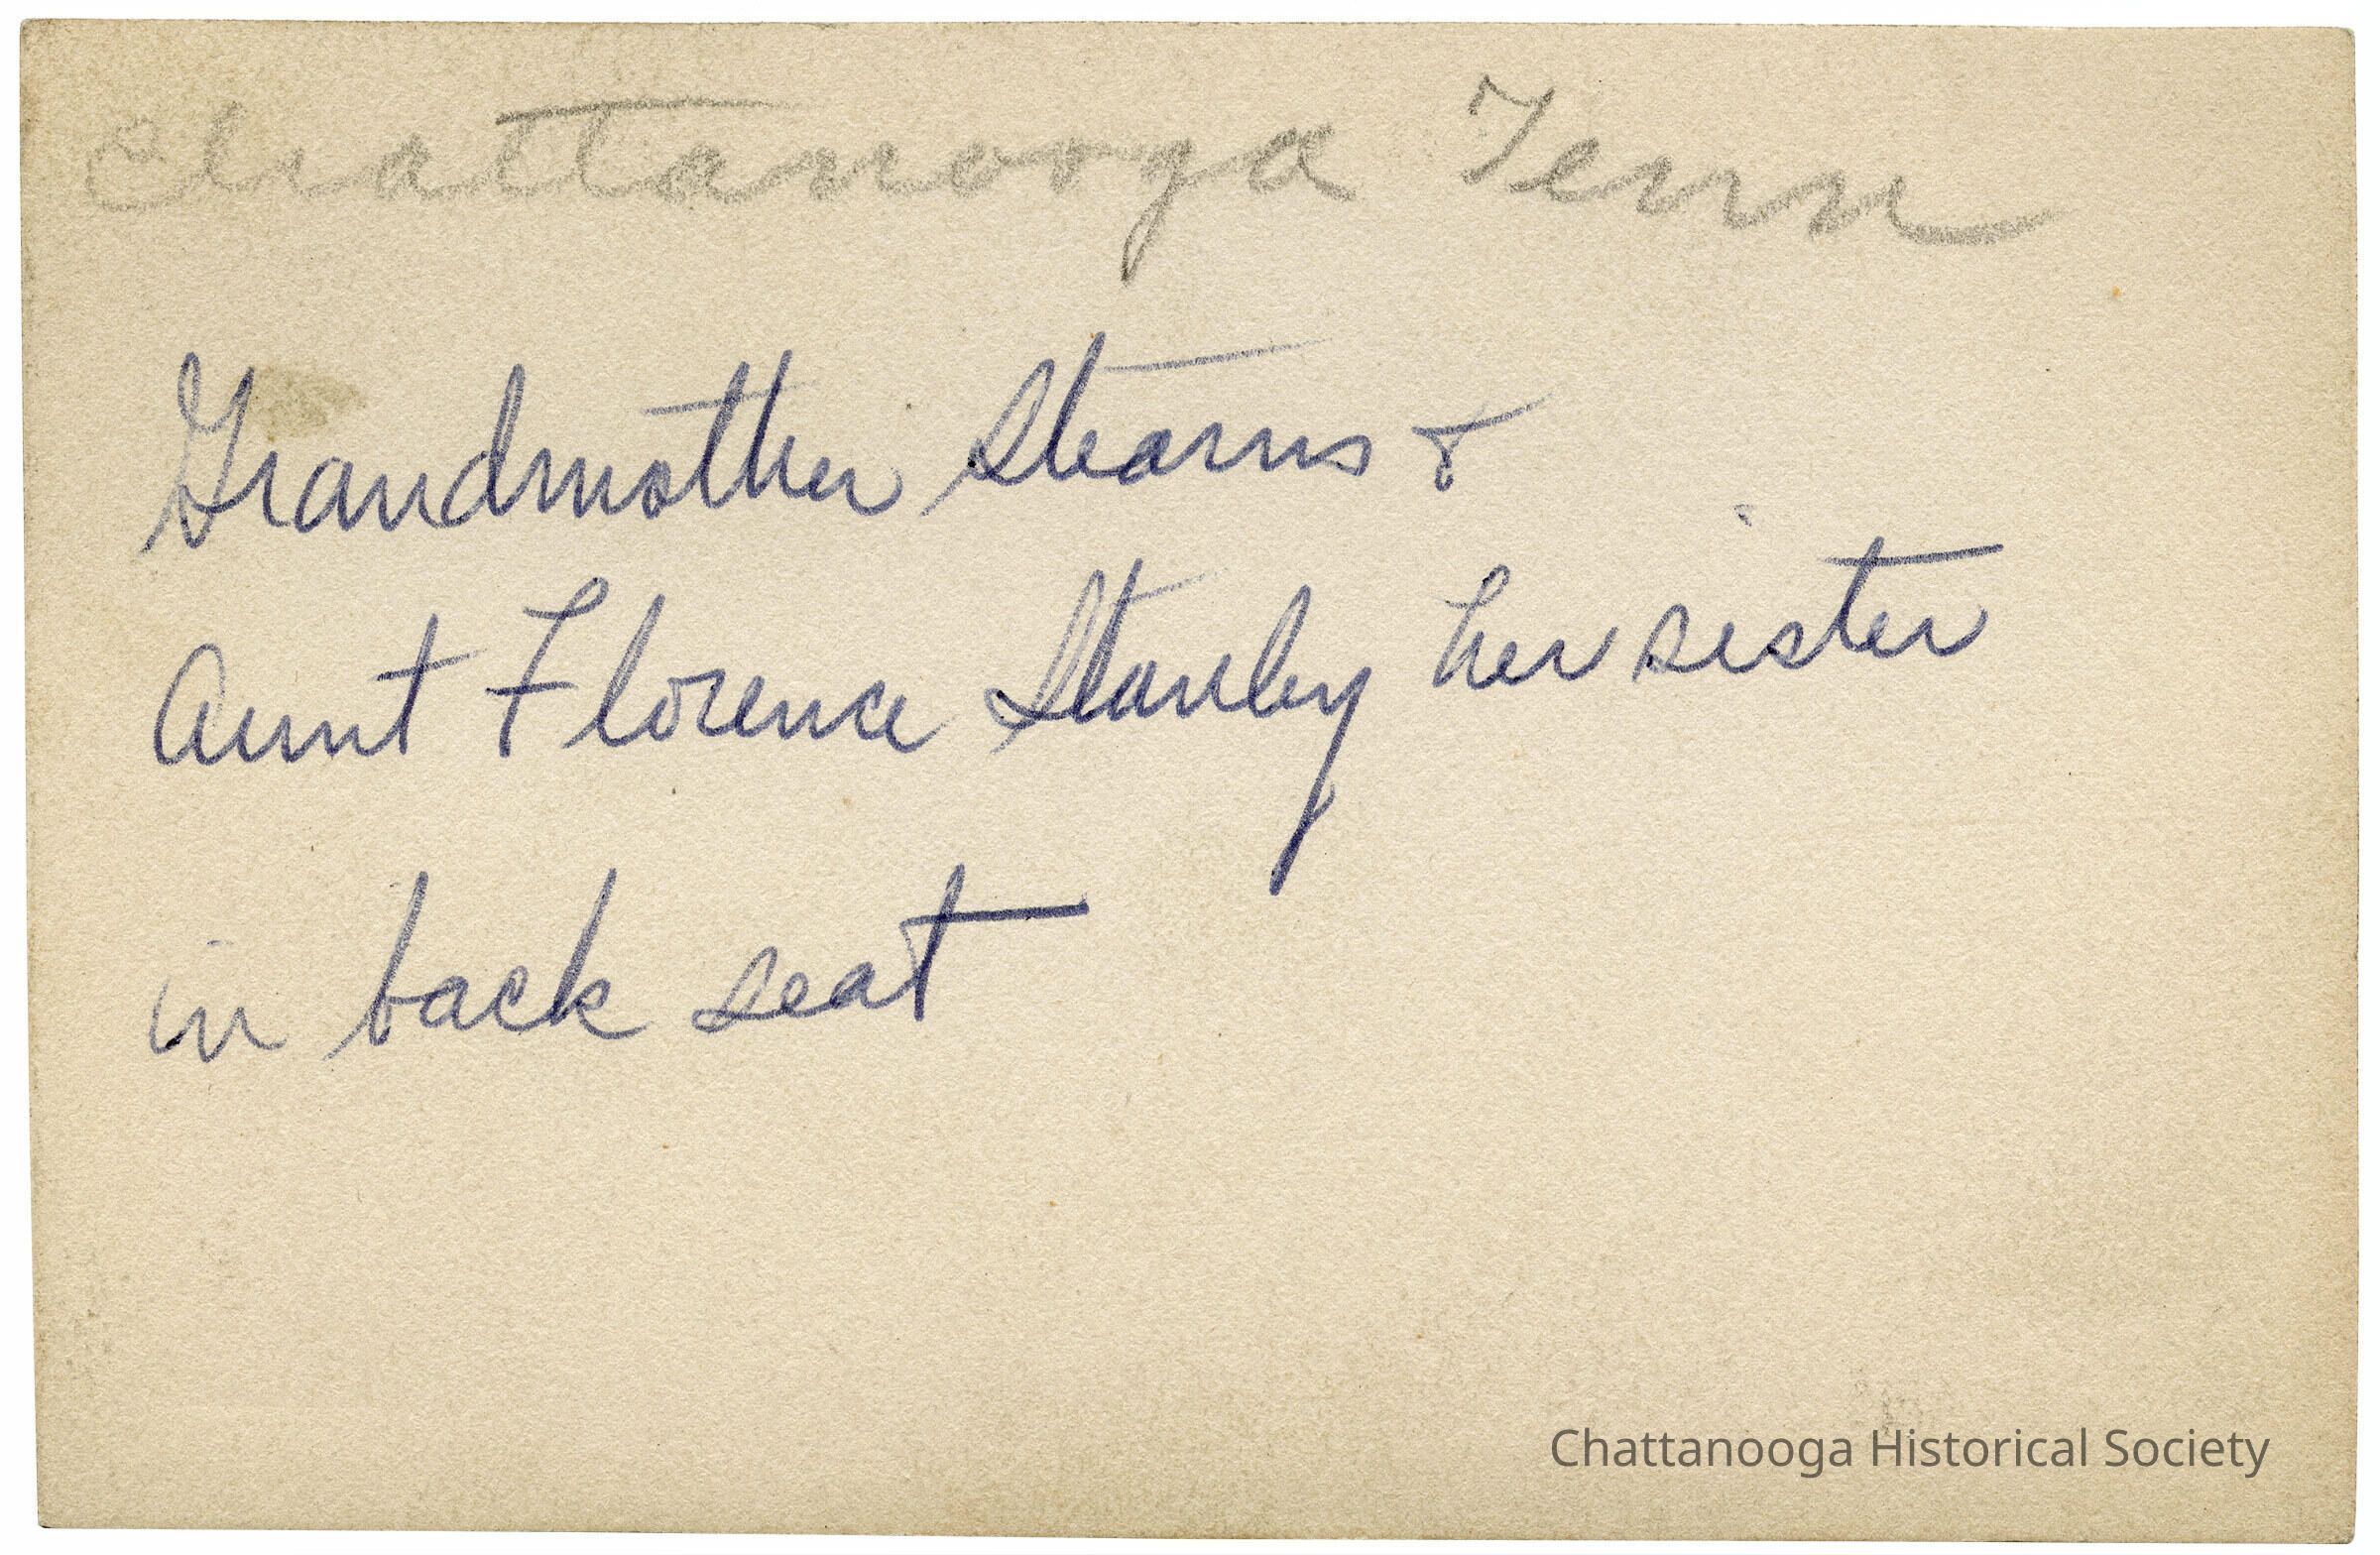 Chattanooga Tenn
Grandmother Stearns &
Aunt Florence Stanley her sister
in back seat
Chattanooga Historical Society